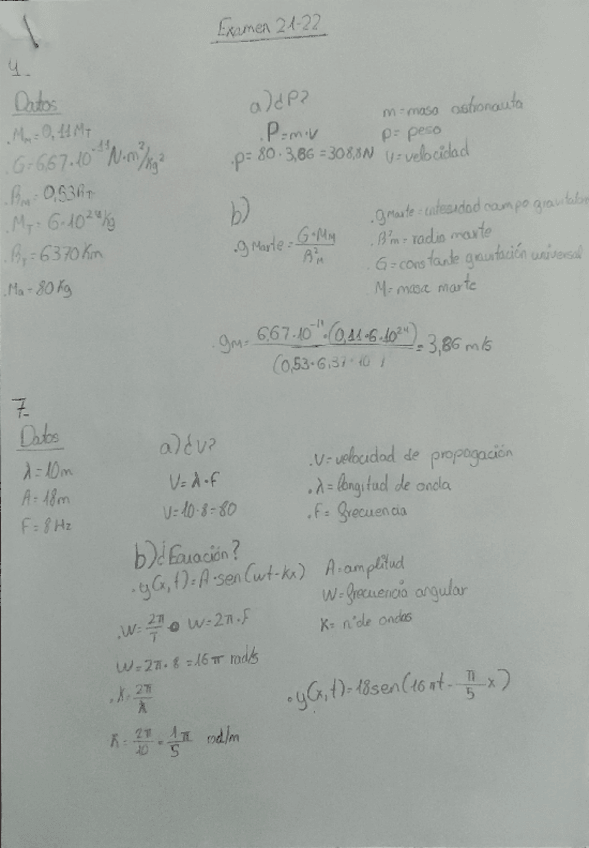 Examen 21-22
4-
Datos
.Mm=0,11MT
.G=6,67·10^-11 N·m²/kg²
.RM=0,53RT
.MT=6·10^24 kg
.RT=6370Km
.Ma=80Kg
a) ¿P?
.P=m·v
.p=80·3,86=308,8N
m=masa astronauta
p=peso
v=velocidad
b)
.g Marte=G·MM/R²m
.gMarte=intesidad campo gravitatorio
.R²m=radio marte
G=constante gravitación universal
M=masa marte
.gM=6,67·10^-11·(0,11·6·10^24)/(0,53·6,37·10 )=3,86 m/s
7-
Datos
λ=10m
A=18m
F=8Hz
a) ¿v?
V=λ·F
V=10·8=80
.V=velocidad de propagación
.λ=longitud de onda
.F=frecuencia
b) ¿Ecuación?
.y(x,t)=A·sen(wt-kx)
A=amplitud
W=frecuencia angular
K=nºde ondas
.W=2π/T o W=2π·F
W=2π·8=16π rad/s
.K=2π/λ
K=2π/10=1π/5 rad/m
.y(x,t)=18sen(16πt-π/5x)